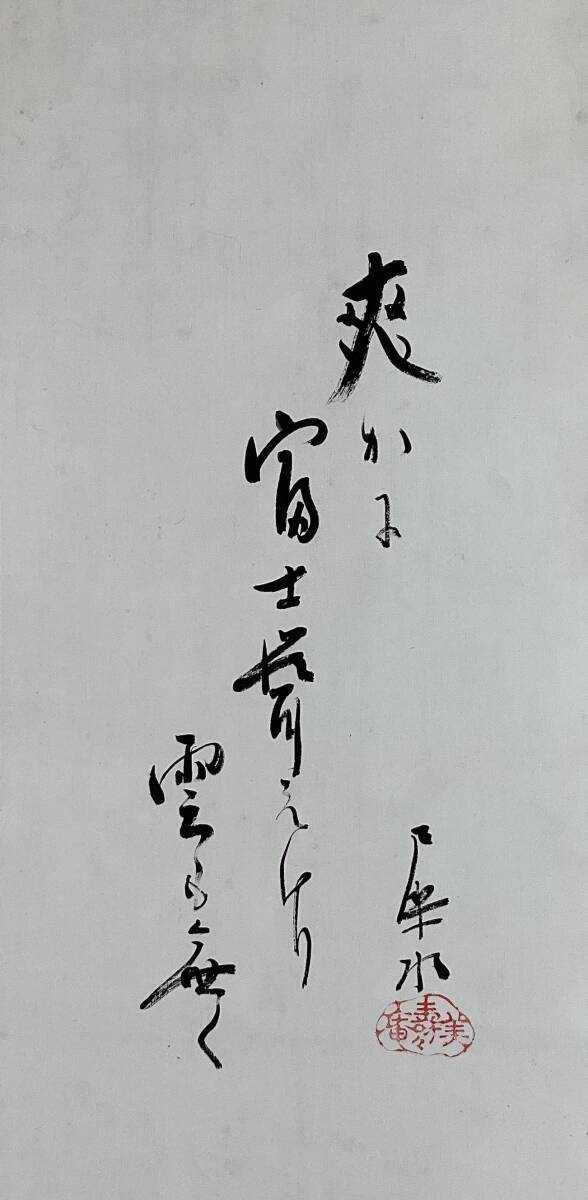 爽かに
富士聳えけり
雲も無く
水